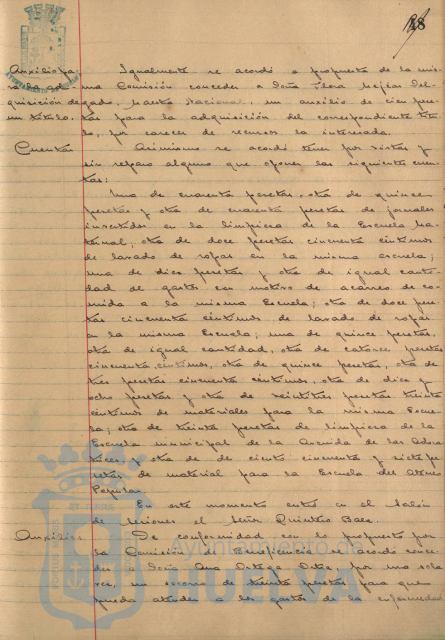 18
Auxilio pa- Igualmente se acordó a propuesta de la mis-
ra la ad- ma Comisión conceder a Doña Flora Mejías Del-
quisición de gado, Maestra Nacional, un auxilio de cien pese-
un título. tas para la adquisición del correspondiente títu-
lo, por carecer de recursos la interesada.
Cuentas Asimismo se acordó tener por vistas y
sin reparo alguno que oponer las siguientes cuen-
tas:
Una de cuarenta pesetas, otra de quince
pesetas y otra de cuarenta pesetas de jornales
invertidos en la limpieza de la Escuela Ma-
ternal; otra de doce pesetas cincuenta céntimos
de lavado de ropas en la misma escuela;
una de diez pesetas y otra de igual canti-
dad de gastos con motivo de acarreo de co-
mida a la misma Escuela; otra de doce pese-
tas cincuenta céntimos de lavado de ropas
a la misma Escuela; una de quince pesetas,
otra de igual cantidad, otra de catorce pesetas
cincuenta céntimos, otra de quince pesetas, otra de
tres pesetas cincuenta céntimos, otra de diez y
ocho pesetas y otra de veintitres pesetas treinta
céntimos de materiales para la misma Escue-
la; otra de treinta pesetas de limpieza de la
Escuela municipal de la Avenida de las Adora-
trices y otra de de ciento cincuenta y siete pe-
setas de material para la Escuela del Ateneo
Popular.
En este momento entró en el Salón
de sesiones el Señor Quintero Baez.
Auxilios De conformidad con lo propuesto por
la Comisión de Beneficencia se acordó conce-
der a Doña Ana Ortega Ortiz, por una sola
vez, un socorro de treinta pesetas para que
pueda atender a los gastos de la enfermedad
Ayuntamiento de
HUELVA